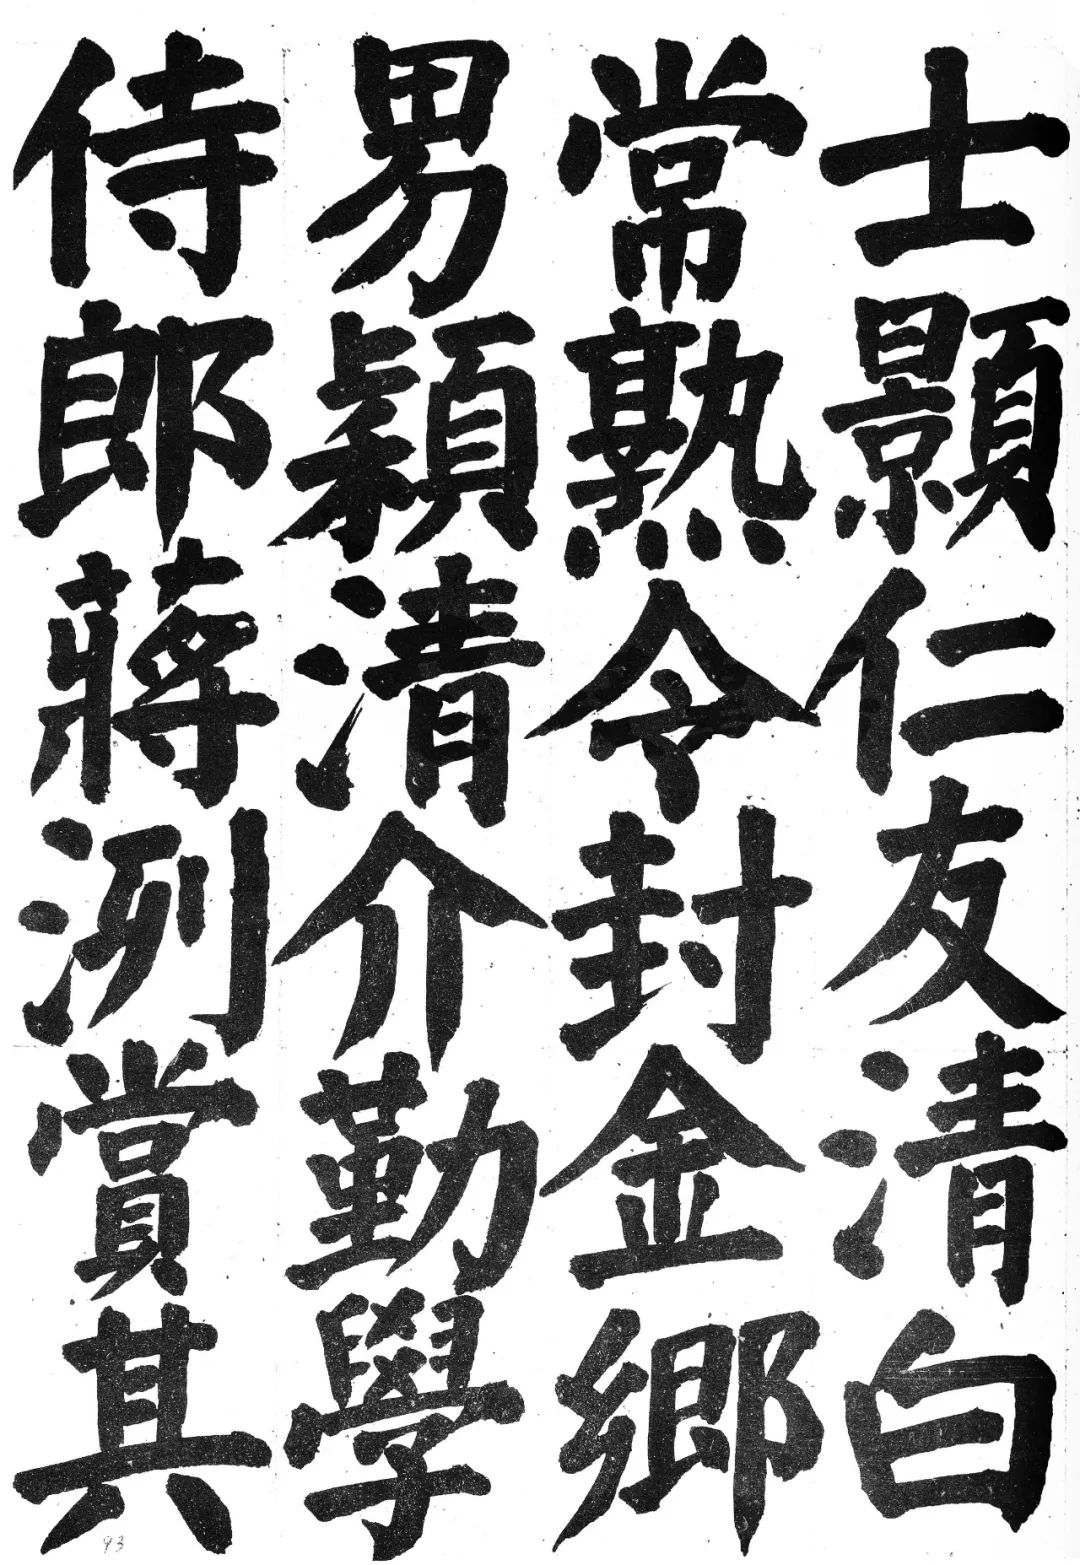 士顥仁友清白
常熟令封金鄉
男穎清介勤學
侍郎蔣洌賞其
93